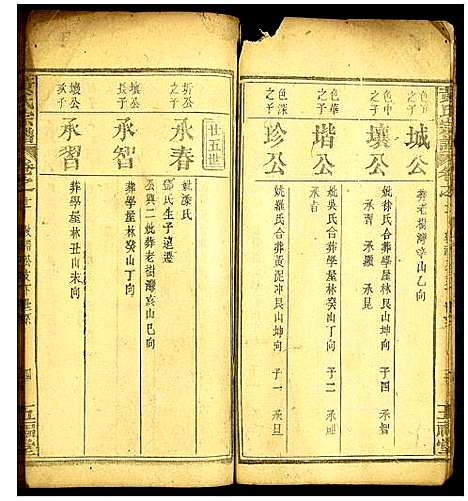 城公
葬老樹灣辛山乙向
色中之子
壞公
妣徐氏合葬學屋林癸山丁向 子四 承智
承習 承晃 承昆
色華之子
堦公
妣吳氏合葬學屋林癸山丁向 子一
色深之子
珍公
妣羅氏合葬黃泥冲艮山坤向 子一 承旦
廿五世
之子
承春
妣漆氏
鄧氏生子遠遷
公與二妣葬老樹灣亥山巳向
壞公長子
承智
葬學屋林癸山丁向
壞公次子
承習
葬學屋林丑山未向
氏宗譜
五福堂